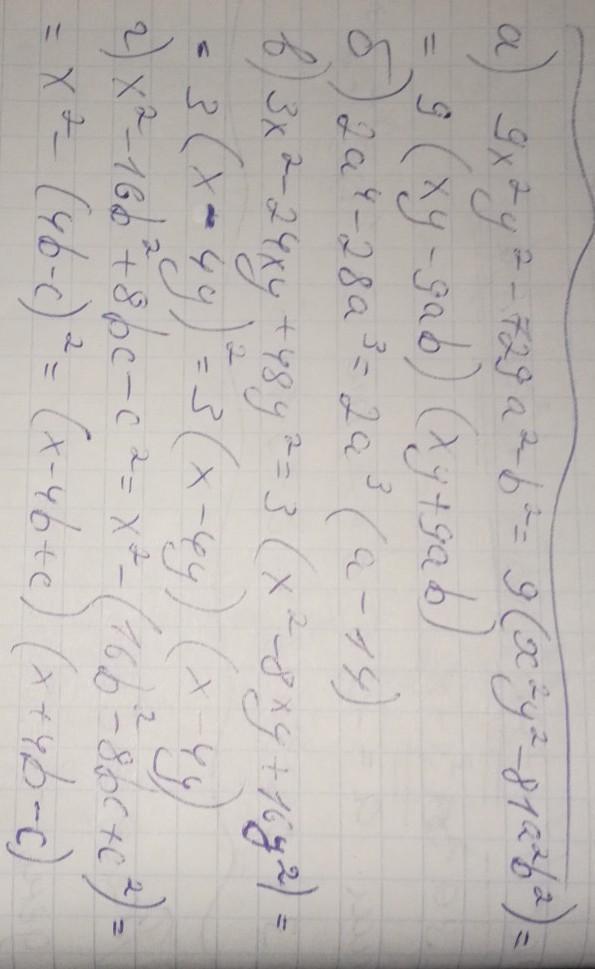 а) 9x²y² - 729a²-b² = 9(x²y²-81a²b²) =
= 9 (xy - 9ab) (xy+9ab)
б) 2a⁴ - 28a³ = 2a³ (a - 14)
в) 3x² - 24xy + 48y² = 3 (x² - 8xy + 16y²) =
= 3 (x - 4y)² = 3 (x - 4y) (x - 4y)
г) x² - 16b² + 8bc - c² = x² - (16b² - 8bc + c²) =
= x² - (4b-c)² = (x - 4b + c) (x + 4b - c)